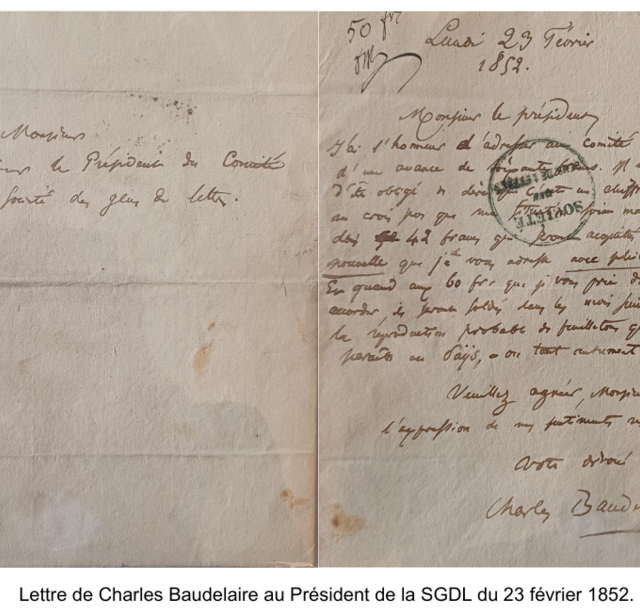 Monsieur
le Président du Comité
Société des gens de lettres.
50 frs
Lundi 23 Février
1852.
Monsieur le président,
J'ai l'honneur d'adresser au comité
d'une avance de soixante francs. Il
d'être obligé de
au crois pas que
SOCIÉTÉ
DES
GENS DE LETTRES
42 francs qui seront acquittés
nouvelle que je vous adresse avec
Et quand aux 60 frs que je vous prie
accorder, ils seront soldés dans les mois
la reproduction probable de feuilletons
paraître au Pays, ou tout autrement
Veuillez agréer, Monsieur
l'expression de mes sentiments
Votre dévoué
Charles Baude
Lettre de Charles Baudelaire au Président de la SGDL du 23 février 1852.